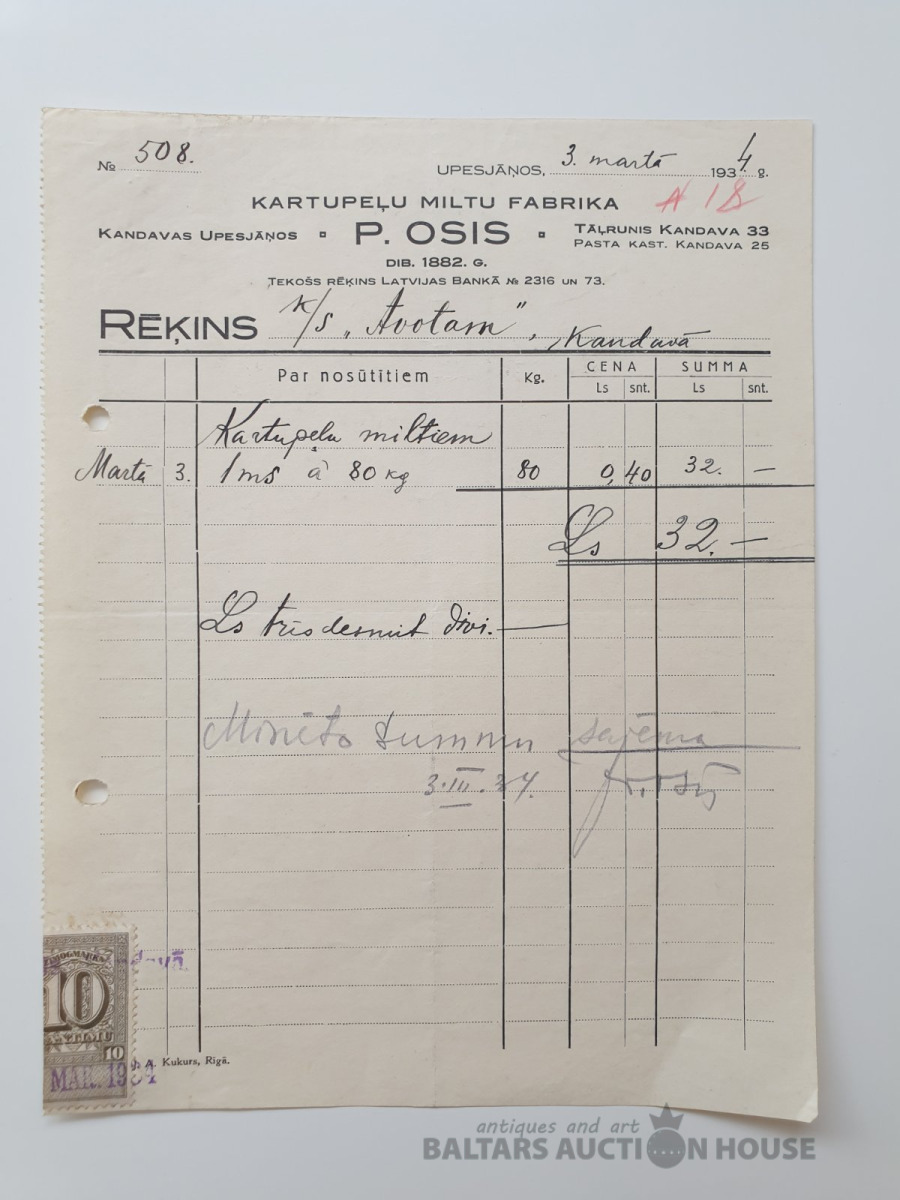 № 508.
Upesjāņos, 3. martā 1934 g.
Kartupeļu miltu fabrika N 18
Kandavas Upesjāņos P. OSIS Tāļrunis Kandava 33
Pasta kast. Kandava 25
Dib. 1882. g.
Tekošs rēķins Latvijas Bankā № 2316 un 73.
Rēķins k/s „Avotam”, Kandavā
Par nosūtītiem Kg. CENA SUMMA
Ls snt. Ls snt.
Kartupeļu miltiem
Martā 3. 1 ms à 80 kg 80 0,40 32. —
Ls 32. —
Ls trīsdesmit divi. —
Minēto summu saņēma
3.III.34.
10
10
A. Kukurs, Rīgā.
MAR. 1934
antiques and art
BALTARS AUCTION HOUSE